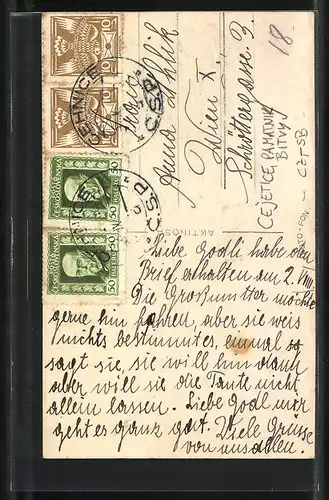 18.
Anna Uhlik
Wien X.
Schröttergasse 3
CEJETICE, PAMATNIK
BITVY
- CZTSB
AKTINOS
ČSP
ČSP
10
10
50
50
50
50
Liebe Godl i habe den
Brief erhalten am 2. VIII.
Die Großmutter möchte
gerne hin fahren, aber sie weis
nichts bestimmtes, einmal so
sagt sie, sie will hin dann
aber will sie die Tante nicht
allein lassen. Liebe Godl mir
geht es ganz gut. Viele Grüsse
von uns allen.